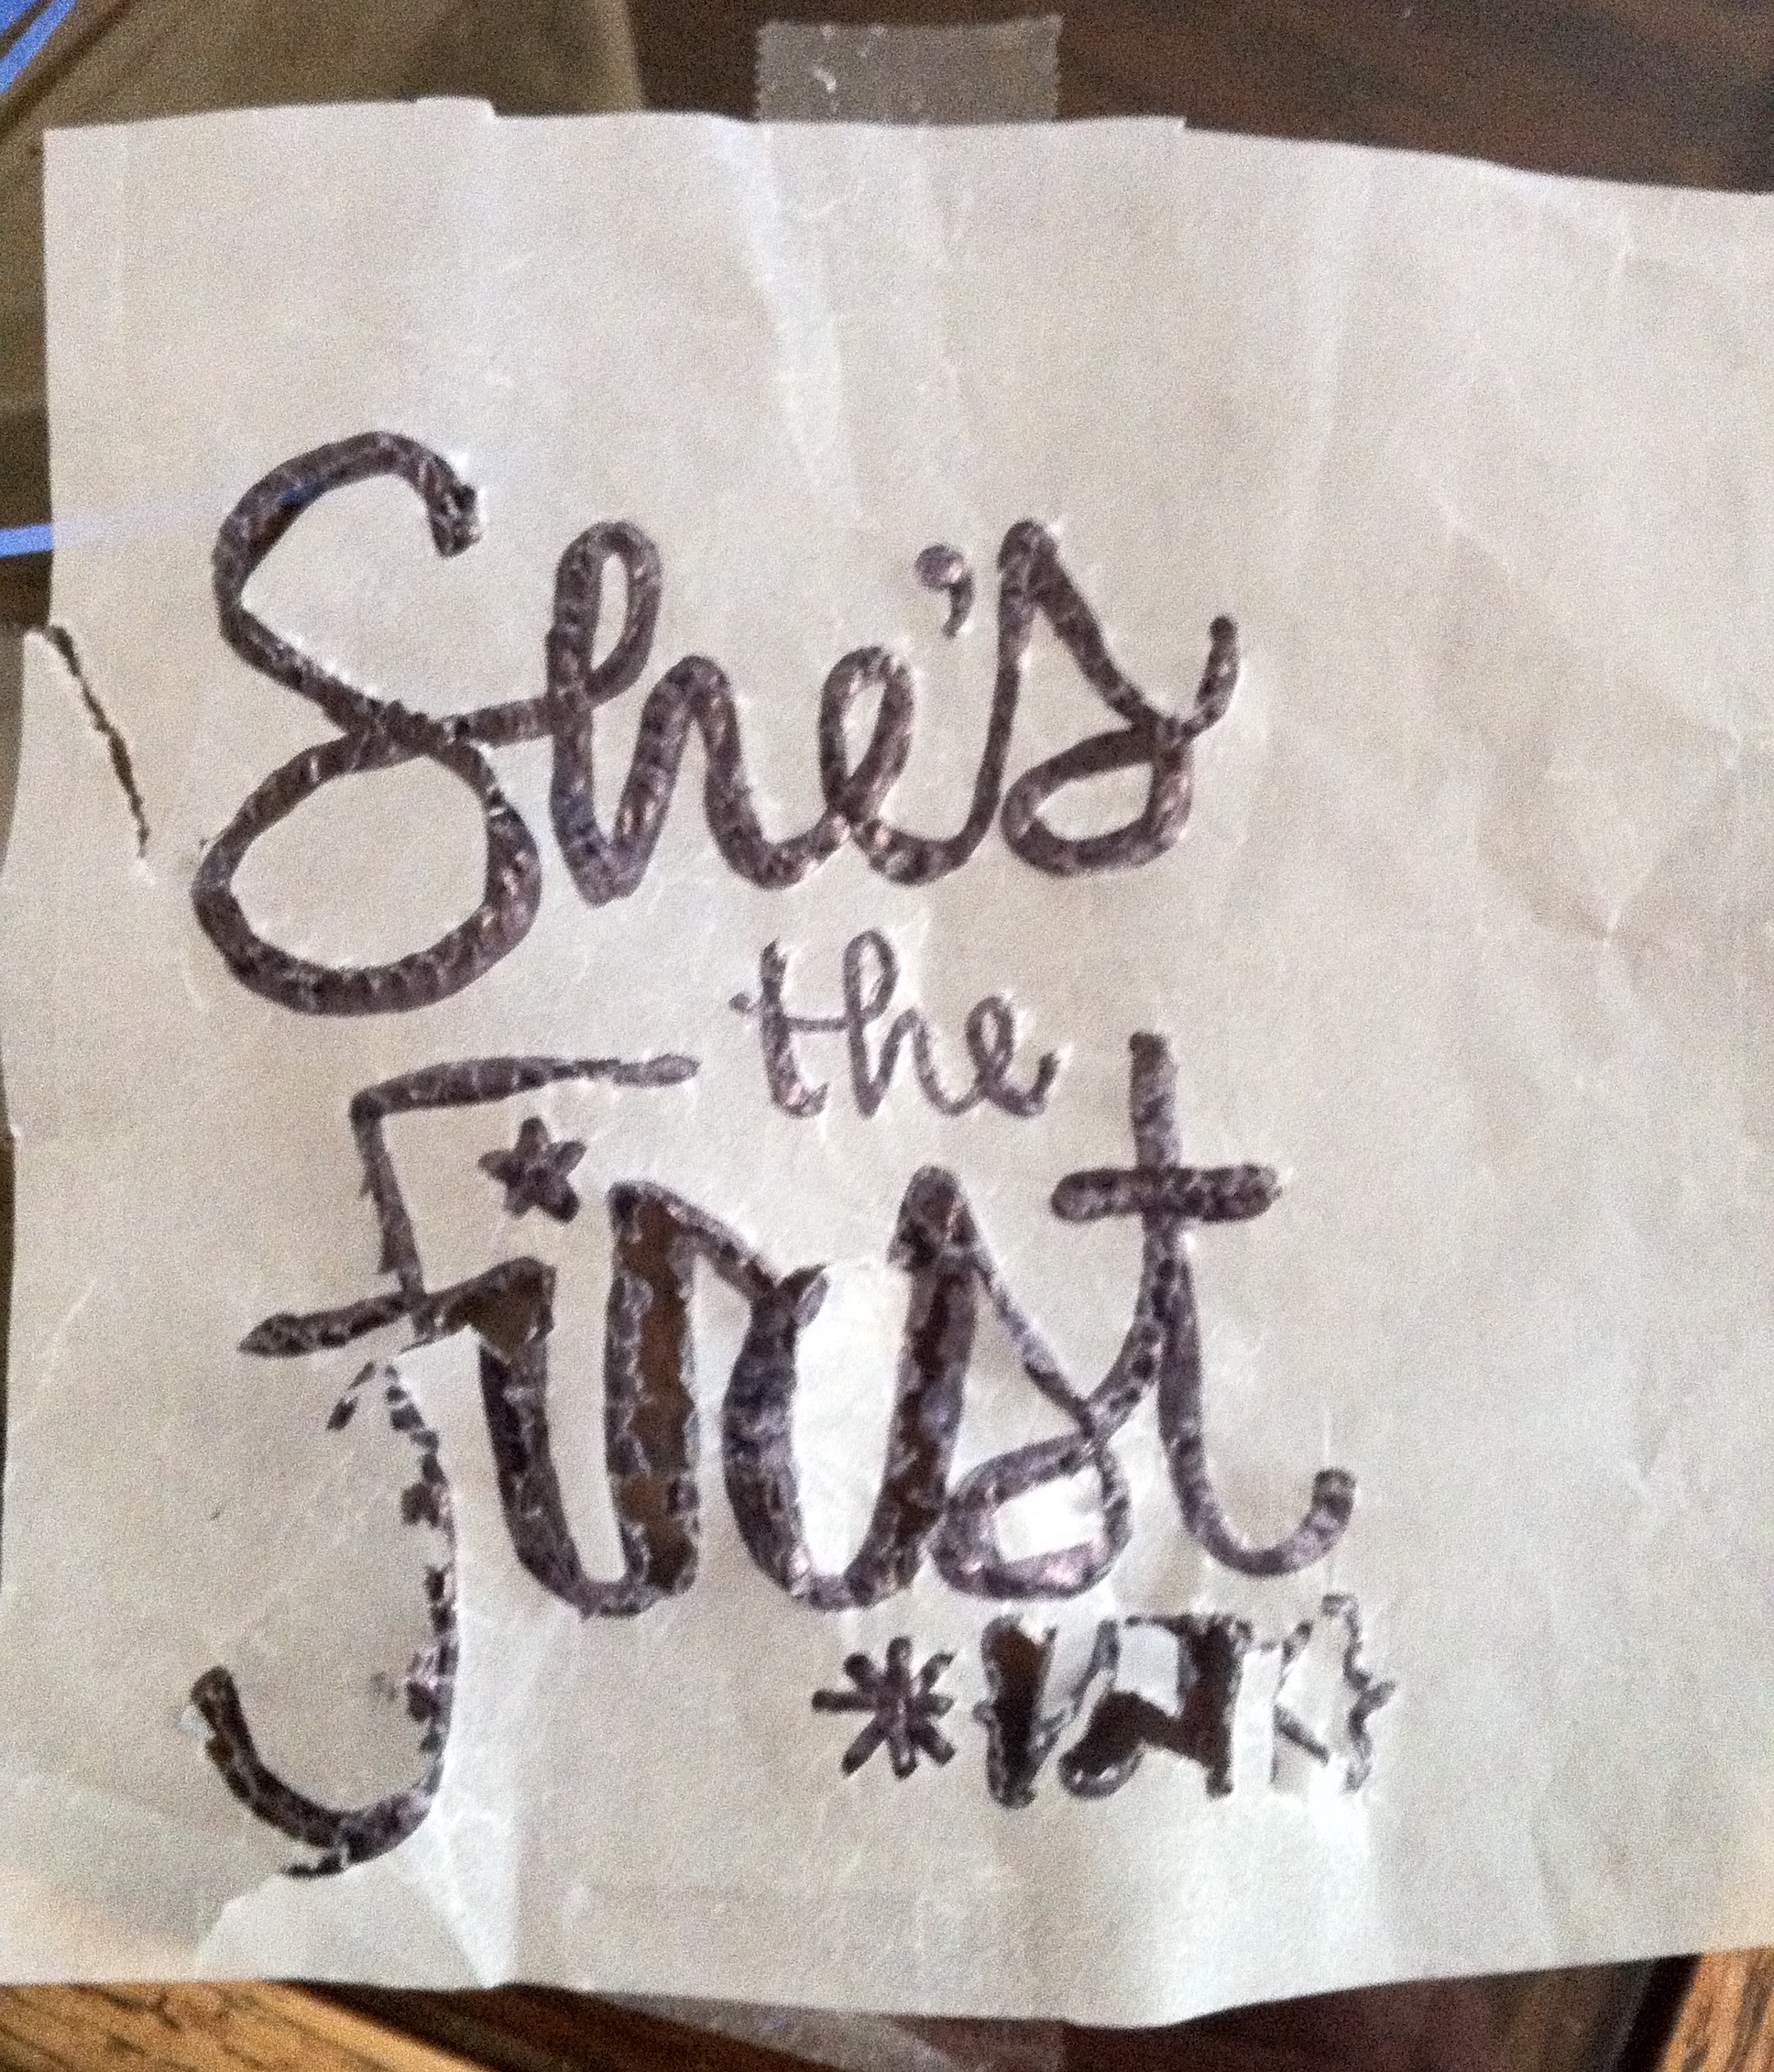 She's
the
First